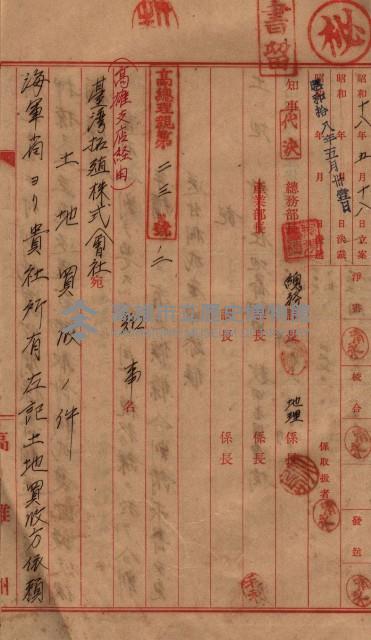 秘
書留
昭和十八年五月十八日立案
昭和 年 月 日決裁
昭和拾八年五月卅壹日
淨書
校合
發送
係取扱者
知事代決
總務部長
產業部長
總務課長
地理係長
課長
係長
課長
係長
高總理親第二三號ノ二
高雄支店経由
臺灣拓殖株式會社宛
知事名
土地買收ノ件
海軍省ヨリ貴社所有左記土地買收方依賴
高雄州
高雄市立歷史博物館